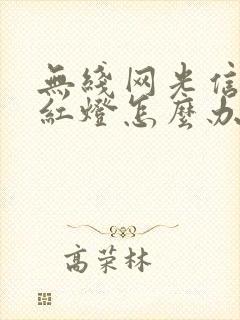 無綫网光信
紅燈怎麼办
高荣林